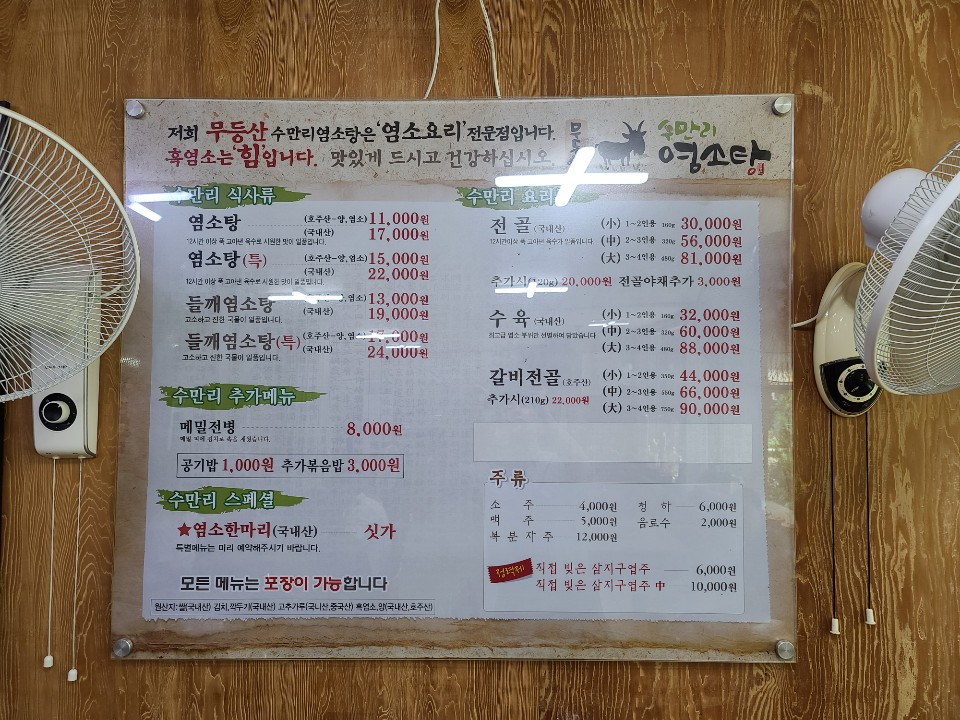 저희 무등산 수만리염소탕은 '염소요리' 전문점입니다.
흑염소는 '힘'입니다. 맛있게 드시고 건강하십시오.
수만리
염소탕
수만리 식사류
염소탕 (호주산-양,염소) 11,000원
(국내산) 17,000원
12시간 이상 푹 고아낸 육수로 시원한 맛이 일품입니다.
염소탕(특) (호주산-양,염소) 15,000원
(국내산) 22,000원
12시간 이상 푹 고아낸 육수로 시원한 맛이 일품입니다.
들깨염소탕 13,000원
(국내산) 19,000원
고소하고 진한 국물이 일품입니다.
들깨염소탕(특) (호주산-양,염소) 17,000원
(국내산) 24,000원
고소하고 진한 국물이 일품입니다.
수만리 추가메뉴
메밀전병 8,000원
공기밥 1,000원 추가볶음밥 3,000원
수만리 스페셜
★염소한마리(국내산) 싯가
특별메뉴는 미리 예약해주시기 바랍니다.
모든 메뉴는 포장이 가능합니다
원산지:쌀(국내산) 김치,깍두기(국내산) 고추가루(국내산,중국산) 흑염소,양(국내산,호주산)
수만리 요리
전골 (국내산) (小) 1~2인용 160g 30,000원
12시간 이상 푹 고아낸 육수가 일품입니다 (中) 2~3인용 320g 56,000원
(大) 3~4인용 480g 81,000원
추가시(120g) 20,000원 전골야채추가 3,000원
수육 (국내산) (小) 1~2인용 160g 32,000원
(中) 2~3인용 320g 60,000원
(大) 3~4인용 480g 88,000원
갈비전골 (호주산) (小) 1~2인용 350g 44,000원
추가시(210g) 22,000원 (中) 2~3인용 550g 66,000원
(大) 3~4인용 750g 90,000원
주류
소주 4,000원 청하 6,000원
맥주 5,000원 음료수 2,000원
복분자주 12,000원
정력제 직접 빚은 삼지구엽주 6,000원
직접 빚은 삼지구엽주 中 10,000원